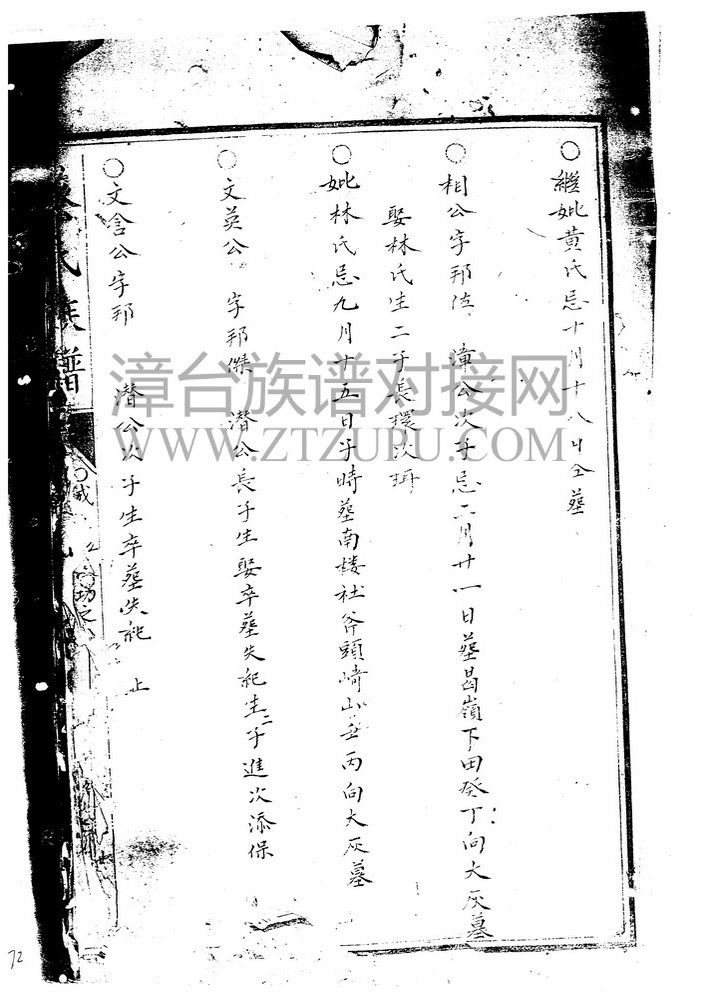 ○繼妣黄氏忌十月十八日仝墓
○相公字邦佐 漳公次子忌二月廿一日墓曷嶺下田癸丁向大灰墓
娶林氏生二子長環次珥
○妣林氏忌九月十五日子時墓南樓社斧頭崎山壬丙向大灰墓
○文英公 字邦傑 潜公長子生娶卒墓失紀生二子進次添保
○文含公字邦 潜公次子生卒墓失紀 止
氏族譜
漳台族谱对接网
WWW.ZTZUPU.COM
72